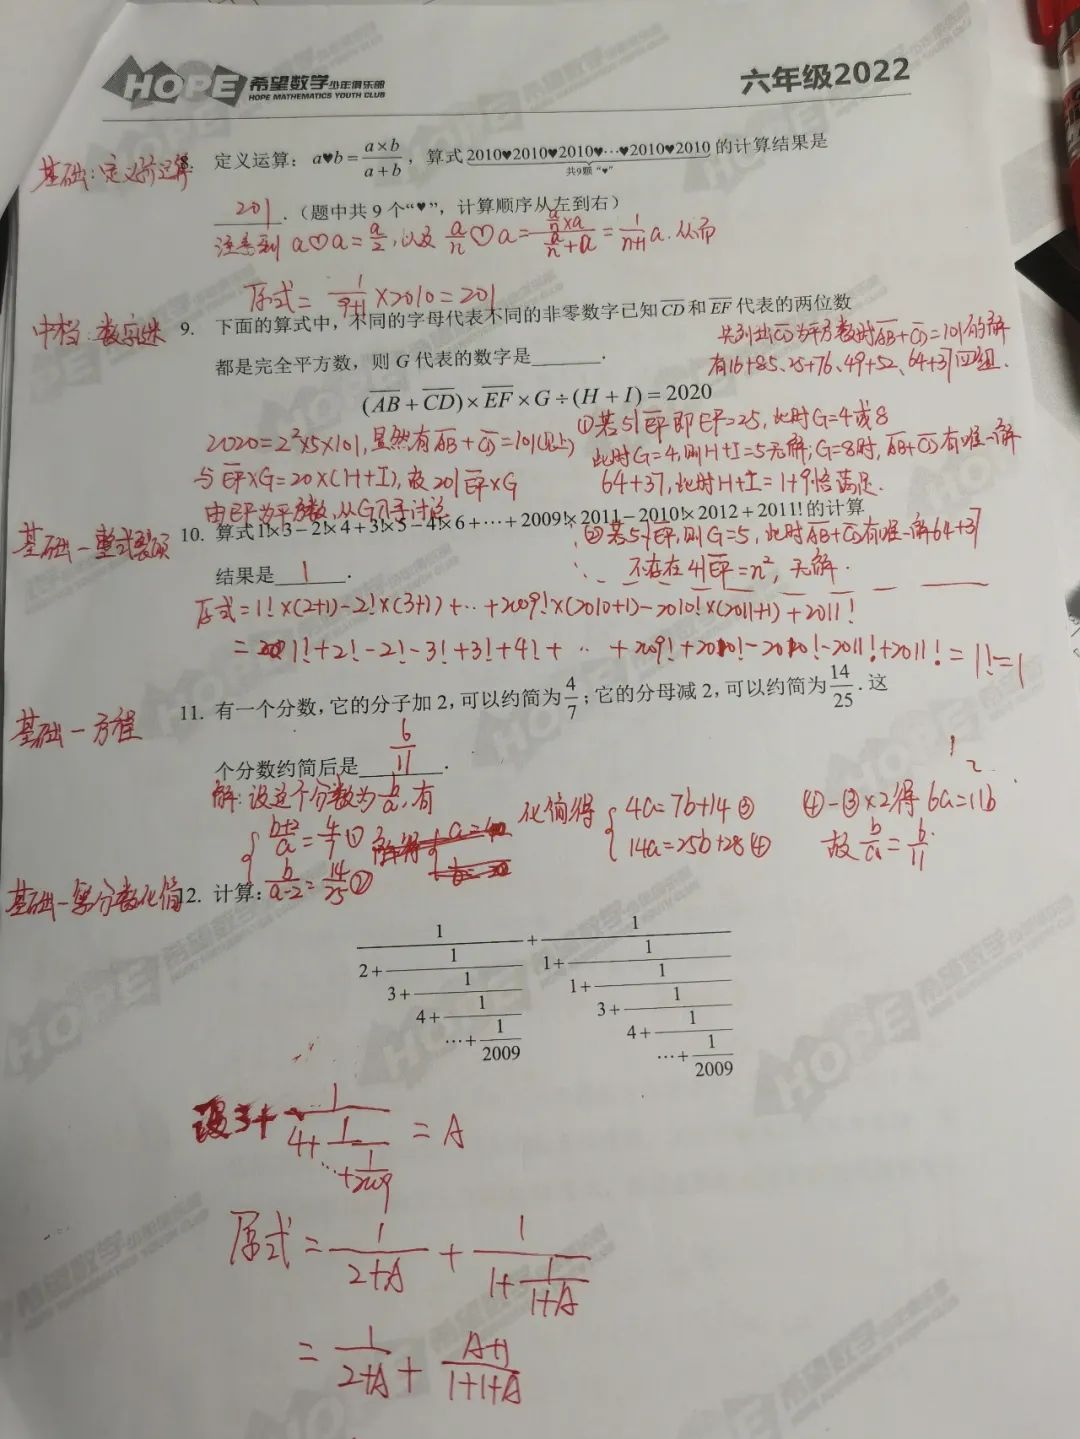 HOPE 希望数学少年俱乐部
HOPE MATHEMATICS YOUTH CLUB
六年级2022
基础:定义新运算
8. 定义运算：a♥b=\frac{a×b}{a+b}，算式2010♥2010♥2010♥⋯♥2010♥2010的计算结果是
共9颗“♥”
201.（题中共9个“♥”，计算顺序从左到右）
注意到 a♡a=\frac{a}{2},以及 \frac{a}{n}♡a=\frac{\frac{a}{n}×a}{\frac{a}{n}+a}=\frac{1}{n+1}a.从而
原式=\frac{1}{9+1}×2010=201
中档:数字谜
9. 下面的算式中，不同的字母代表不同的非零数字已知\overline{CD}和\overline{EF}代表的两位数
都是完全平方数，则G代表的数字是______.
先列出\overline{CD}为平方数时\overline{AB}+\overline{CD}=101的解
有16+85、25+76、49+52、64+37四组.
(\overline{AB}+\overline{CD})×\overline{EF}×G÷(H+I)=2020
2020=2²×5×101,显然有\overline{AB}+\overline{CD}=101(见上)
与\overline{EF}×G=20×(H+I),故20|\overline{EF}×G
由\overline{EF}为平方数,从G入手讨论
①若5|\overline{EF}即EF=25,此时G=4或8
此时G=4,则H+I=5无解;G=8时,\overline{AB}+\overline{CD}有唯一解
64+37,此时H+I=1+9恰满足.
②若5∤\overline{EF},则G=5,此时\overline{AB}+\overline{CD}有唯一解64+37
不存在4|\overline{EF}=n²,无解.
基础-整式裂项
10. 算式1!×3−2!×4+3!×5−4!×6+⋯+2009!×2011−2010!×2012+2011!的计算
结果是 1 .
原式=1!×(2+1)-2!×(3+1)+⋯+2009!×(2010+1)-2010!×(2011+1)+2011!
=1!+2!-2!-3!+3!+4!+⋯+2009!+2010!-2010!-2011!+2011!=1!=1
基础-方程
11. 有一个分数，它的分子加2，可以约简为\frac{4}{7}；它的分母减2，可以约简为\frac{14}{25}．这
个分数约简后是 \frac{6}{11} .
解:设这个分数为\frac{b}{a},有
\frac{b+2}{a}=\frac{4}{7}①
\frac{b}{a-2}=\frac{14}{25}②
化简得
4a=7b+14③
14a=25b+28④
④-③×2得6a=11b
故\frac{b}{a}=\frac{6}{11}.
1
2
基础-繁分数化简
12. 计算:
\frac{1}{2+\frac{1}{3+\frac{1}{4+\frac{1}{⋯+\frac{1}{2009}}}}}+\frac{1}{1+\frac{1}{1+\frac{1}{3+\frac{1}{4+\frac{1}{⋯+\frac{1}{2009}}}}}}
设3+\frac{1}{4+\frac{1}{⋯+\frac{1}{2009}}}=A
原式=\frac{1}{2+A}+\frac{1}{1+\frac{1}{1+A}}
=\frac{1}{2+A}+\frac{A+1}{1+1+A}